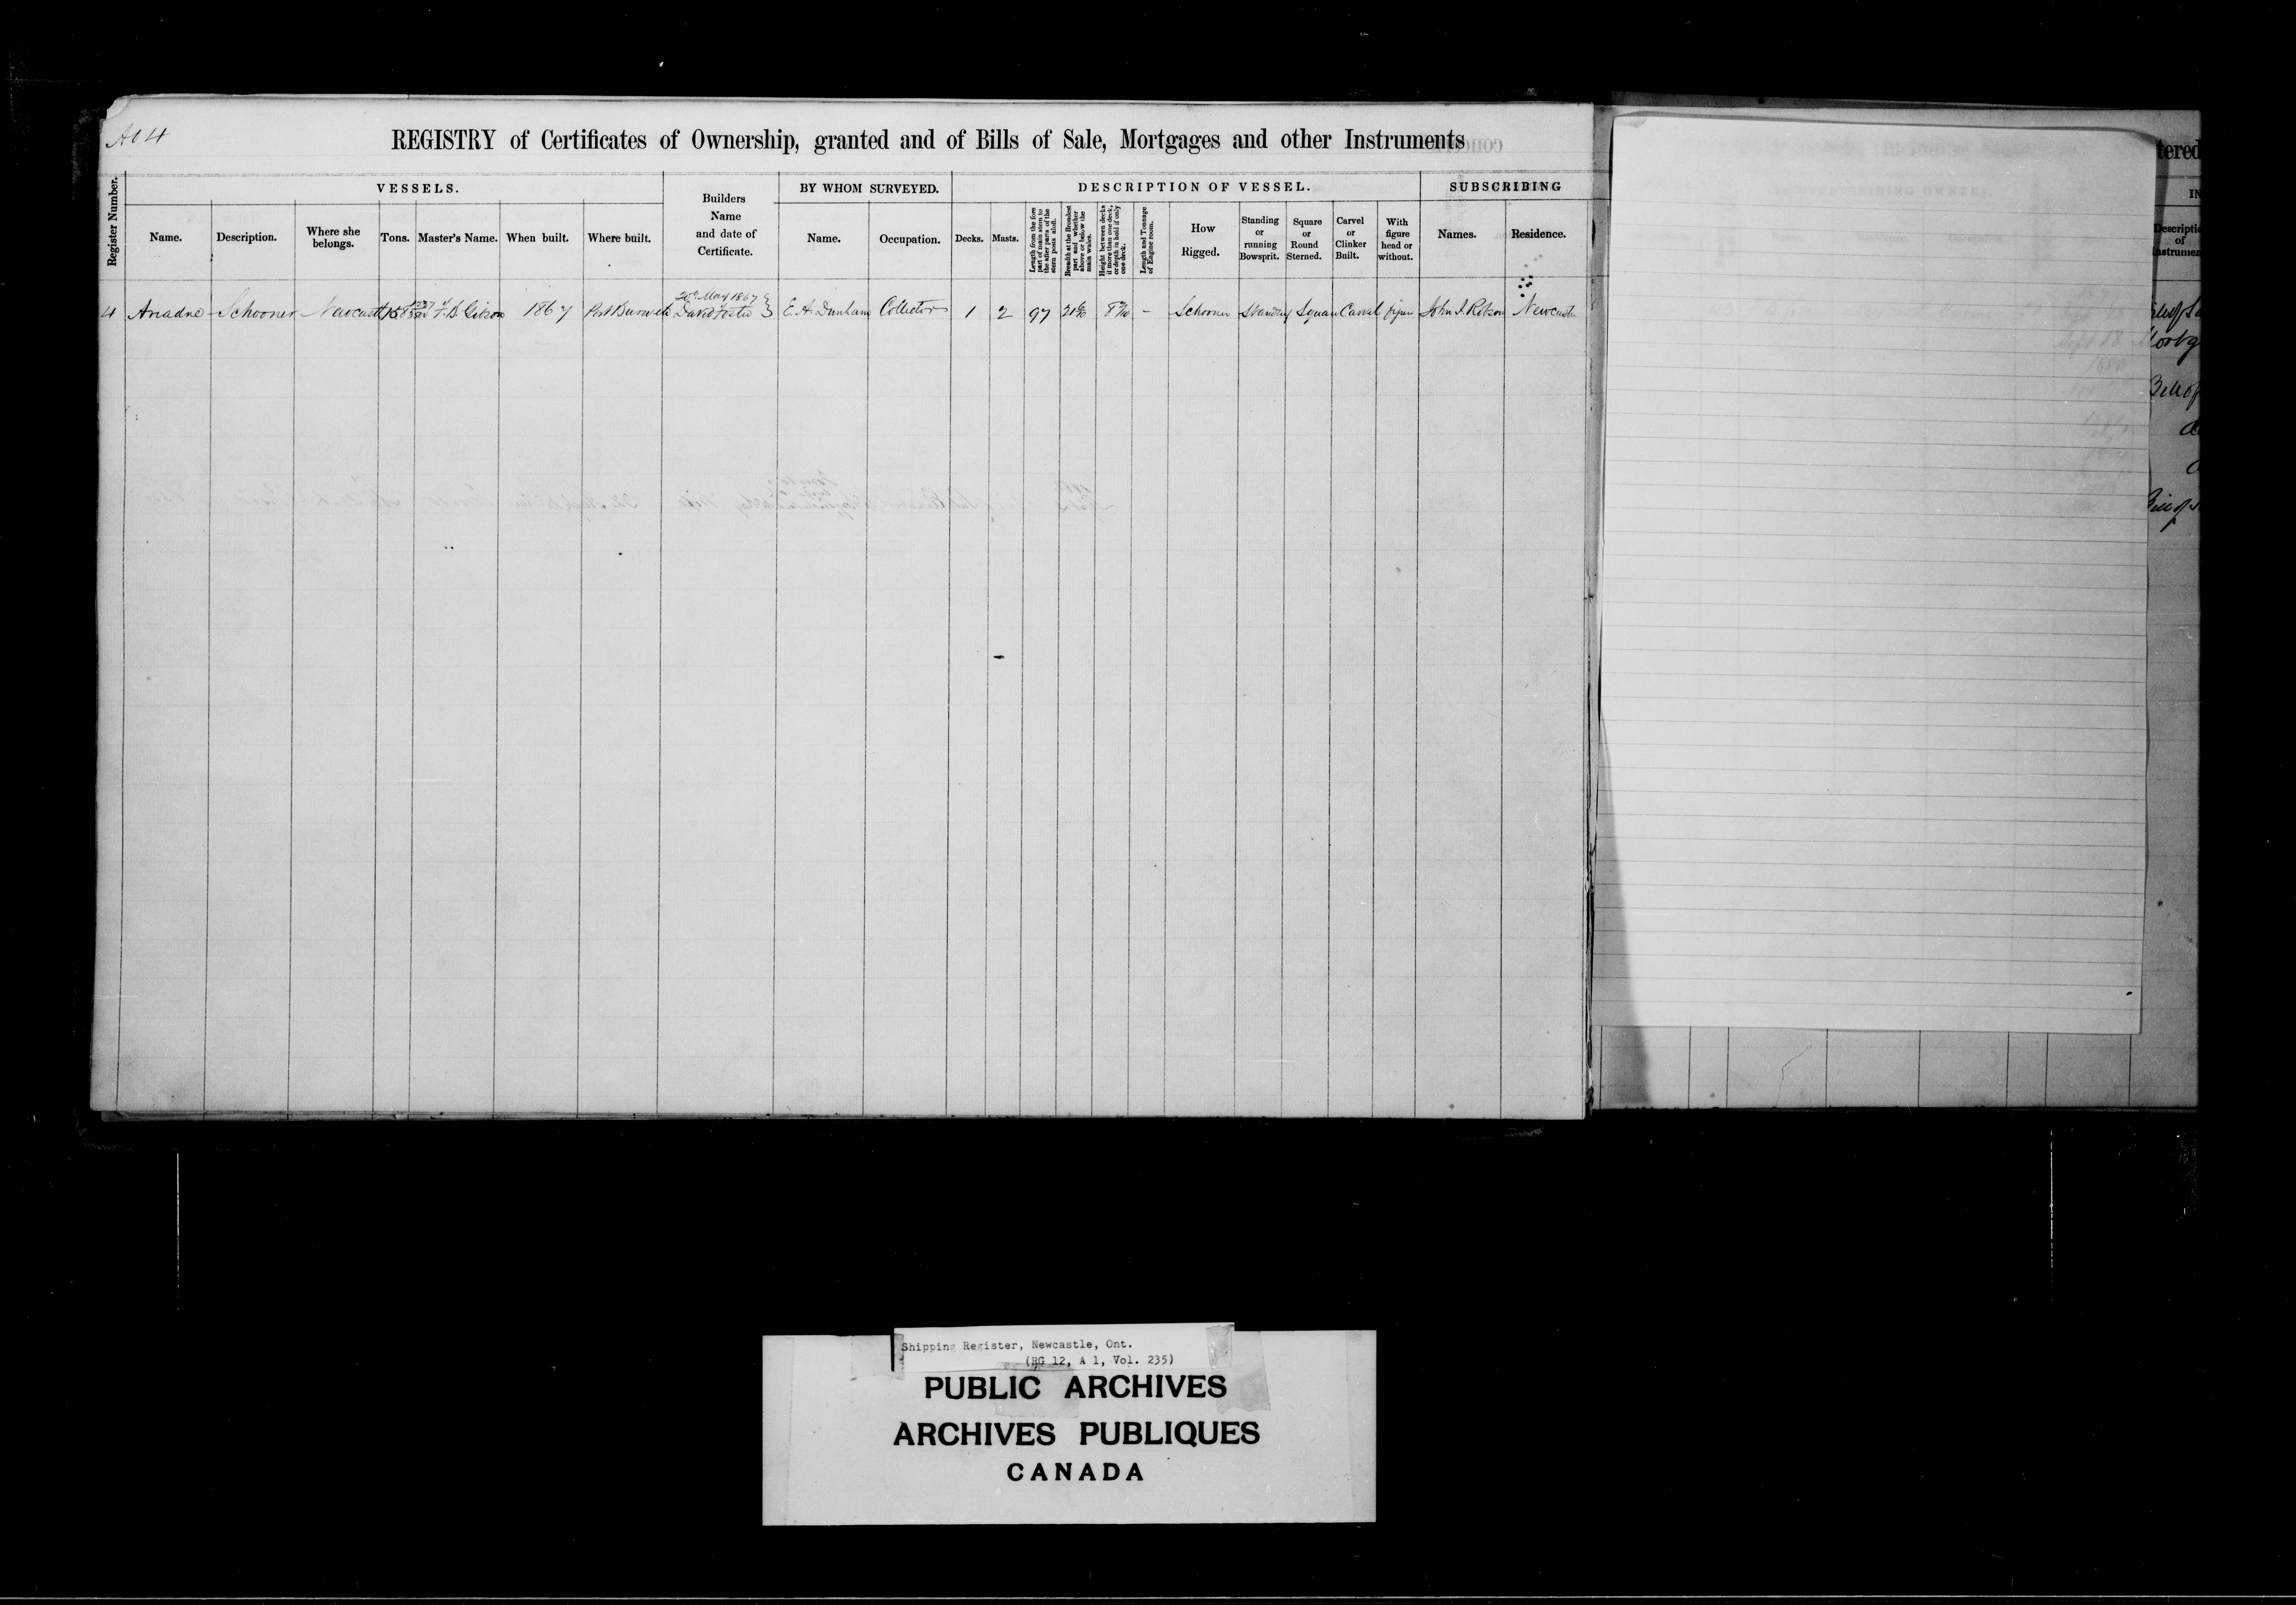 No 4
REGISTRY of Certificates of Ownership, granted and of Bills of Sale, Mortgages and other Instruments
tered
Register Number.
VESSELS.
Name.
Description.
Where she belongs.
Tons.
Master's Name.
When built.
Where built.
Builders Name and date of Certificate.
BY WHOM SURVEYED.
Name.
Occupation.
DESCRIPTION OF VESSEL.
Decks.
Masts.
Length from the fore part of main stem to the after parts of the stern posts aloft.
Breadth at the Broadest part and whether above or below the main wales.
Height between decks if more than one deck, or depth in hold if only one deck.
Length and Tonnage of Engine room.
How Rigged.
Standing or running Bowsprit.
Square or Round Sterned.
Carvel or Clinker Built.
With figure head or without.
SUBSCRIBING
Names.
Residence.
IN
Descriptio
of
Instrumen
4 Ariadne Schooner Newcastle 158 F. B. Gibson 1867 Port Burwell
20th May 1867
David Foster
E. A. Dunham Collector 1 2 97 8 - Schooner Standing Square Carvel figure John I. Robson Newcastle
Bill of Sa
Mortg
Bill of
Shipping Register, Newcastle, Ont.
(RG 12, A 1, Vol. 235)
PUBLIC ARCHIVES
ARCHIVES PUBLIQUES
CANADA